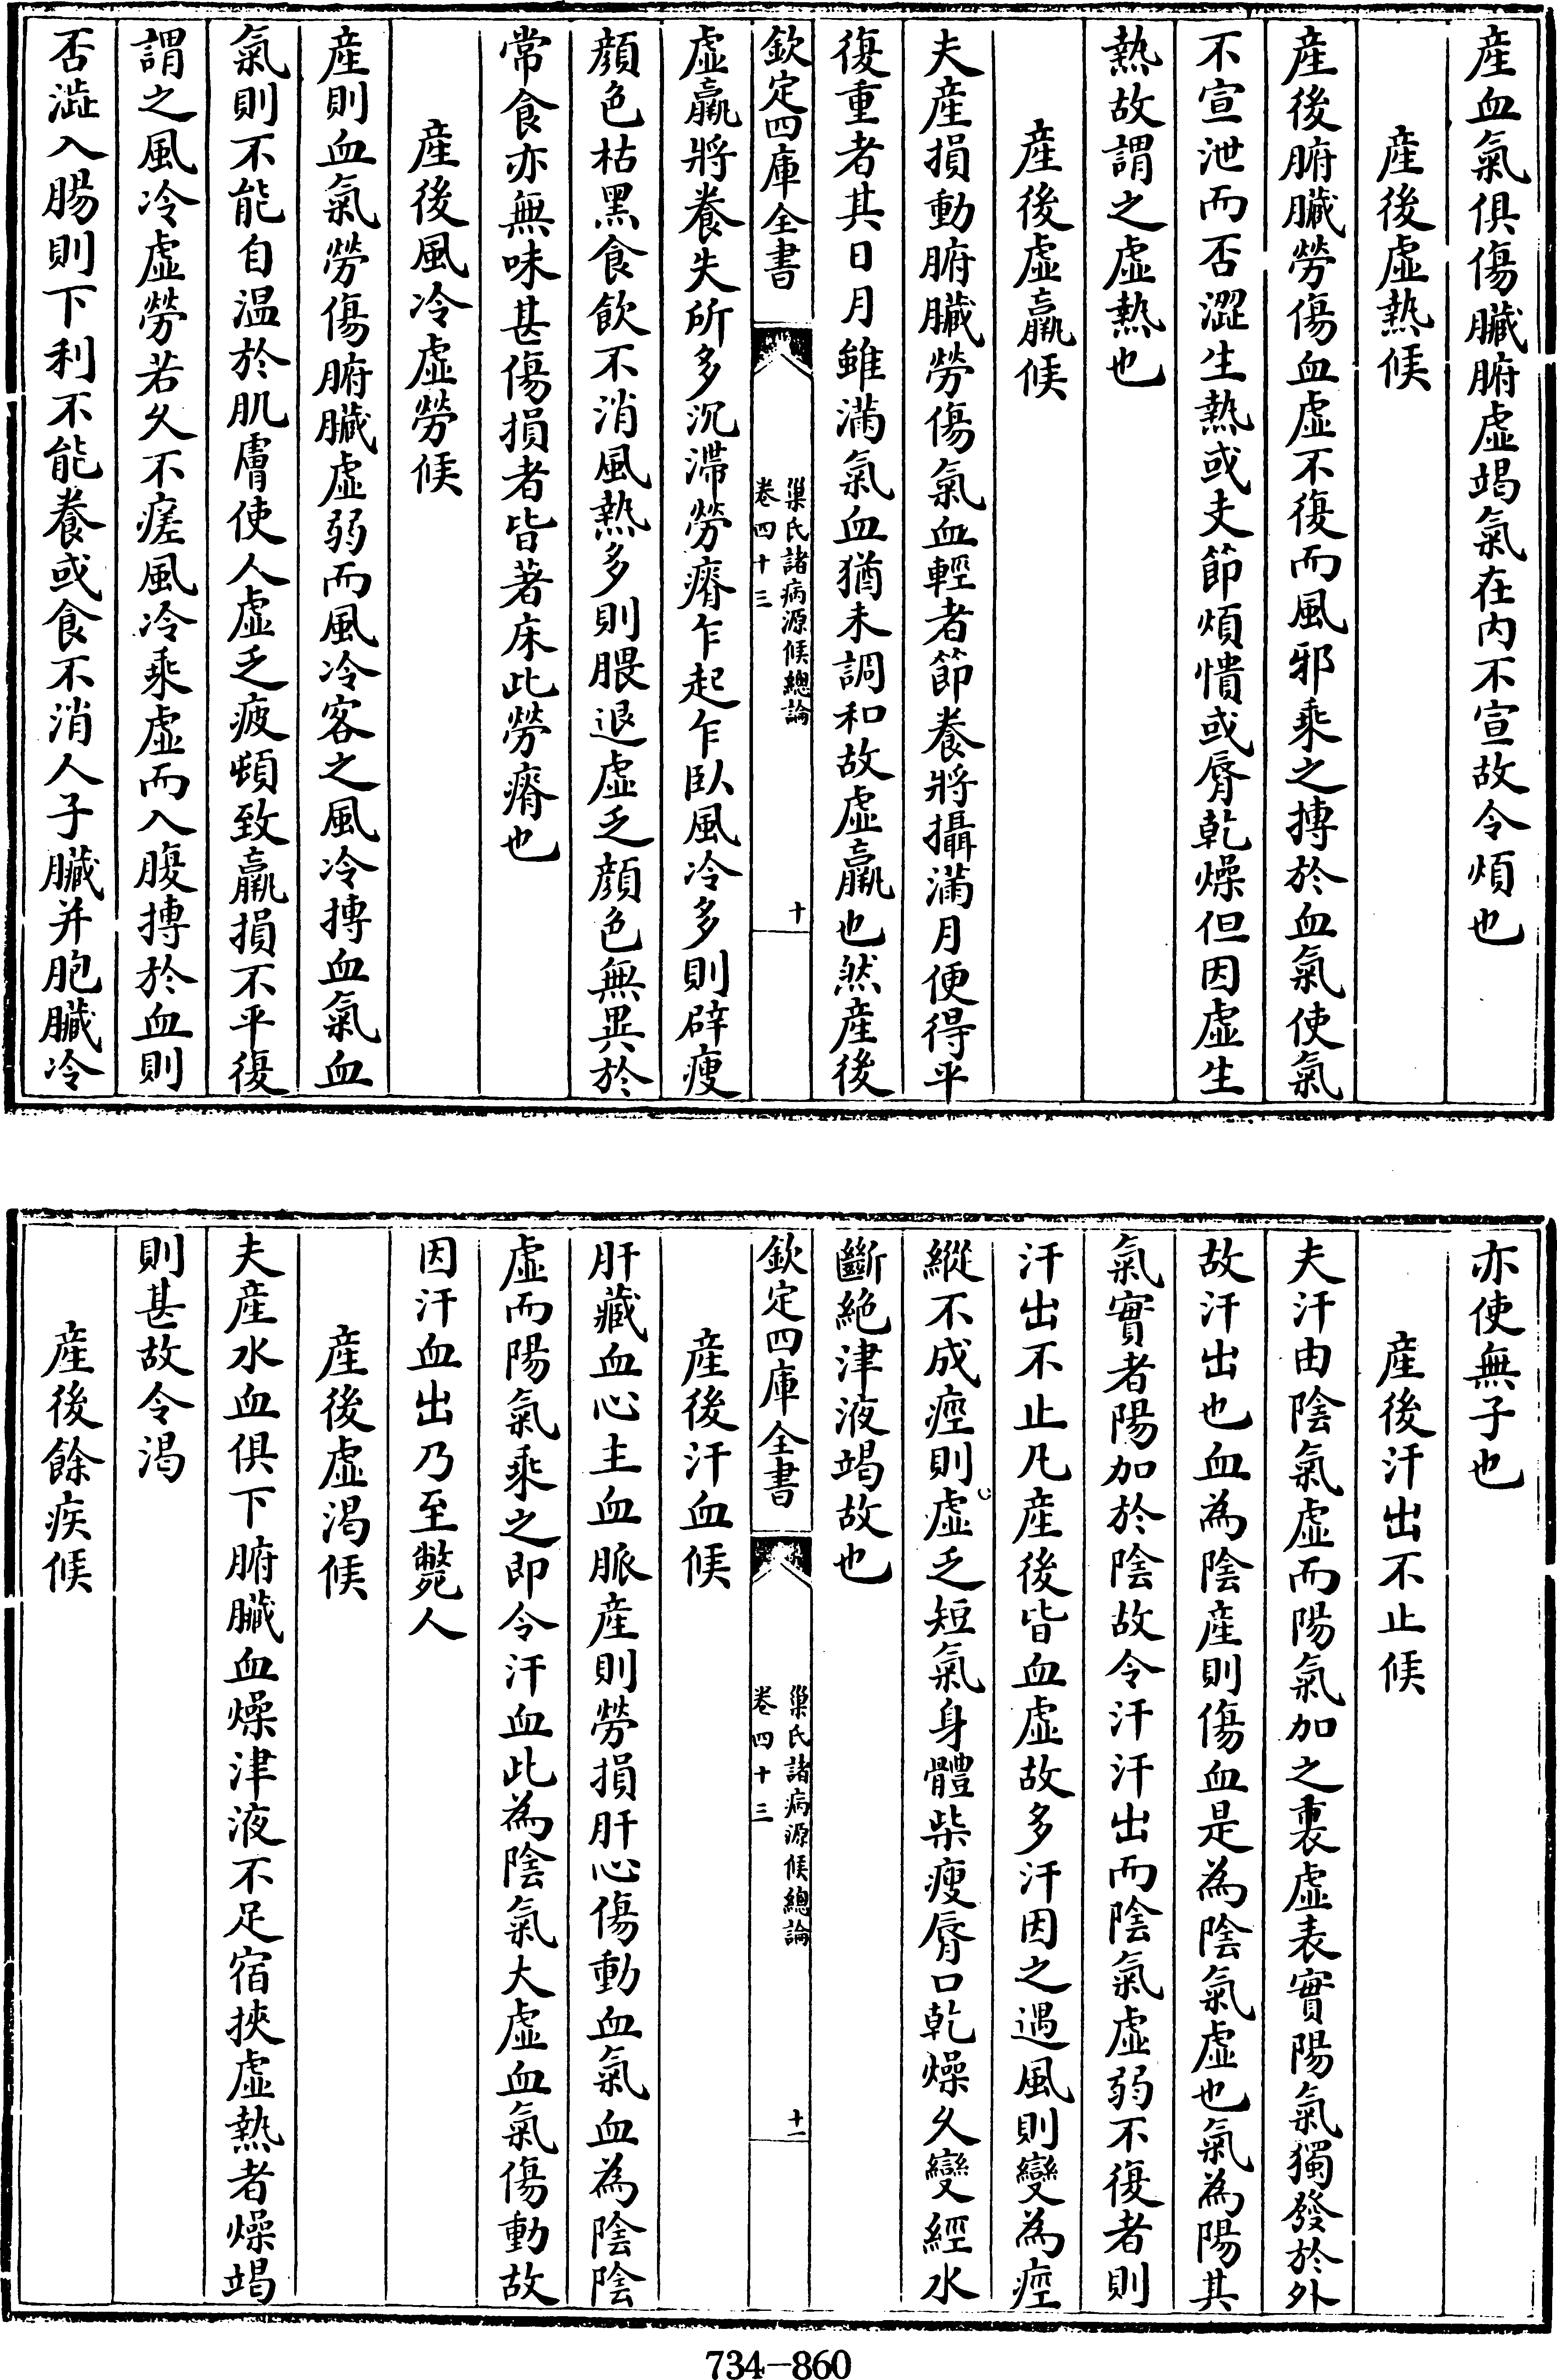 産血氣俱傷臟腑虛竭氣在内不宣故令煩也
産後虛熱候
産後腑臟勞傷血虛不復而風邪乘之搏於血氣使氣
不宣泄而否澀生熱或支節煩憒或脣乾燥但因虛生
熱故謂之虛熱也
産後虛羸候
夫産損動腑臟勞傷氣血輕者節養將攝滿月便得平
復重者其日月雖滿氣血猶未調和故虛羸也然産後
欽定四庫全書
巢氏諸病源候總論
卷四十三
十
虛羸將養失所多沉滯勞瘠乍起乍臥風冷多則辟瘦
顔色枯黑食飲不消風熱多則腲退虛乏顔色無異於
常食亦無味甚傷損者皆著床此勞瘠也
産後風冷虛勞候
産則血氣勞傷腑臟虛弱而風冷客之風冷搏血氣血
氣則不能自温於肌膚使人虛乏疲頓致羸損不平復
謂之風冷虛勞若久不瘥風冷乘虛而入腹搏於血則
否澁入腸則下利不能養或食不消人子臟并胞臟冷
亦使無子也
産後汗出不止候
夫汗由陰氣虛而陽氣加之裏虛表實陽氣獨發於外
故汗出也血為陰産則傷血是為陰氣虛也氣為陽其
氣實者陽加於陰故令汗汗出而陰氣虛弱不復者則
汗出不止凡産後皆血虛故多汗因之遇風則變為痙
縱不成痙則虛乏短氣身體柴瘦脣口乾燥久變經水
斷絶津液竭故也
欽定四庫全書
巢氏諸病源候總論
卷四十三
十一
産後汗血候
肝藏血心主血脈産則勞損肝心傷動血氣血為陰陰
虛而陽氣乘之即令汗血此為陰氣大虛血氣傷動故
因汗血出乃至斃人
産後虛渴候
夫産水血俱下腑臟血燥津液不足宿挾虛熱者燥竭
則甚故令渴
産後餘疾候
734-860